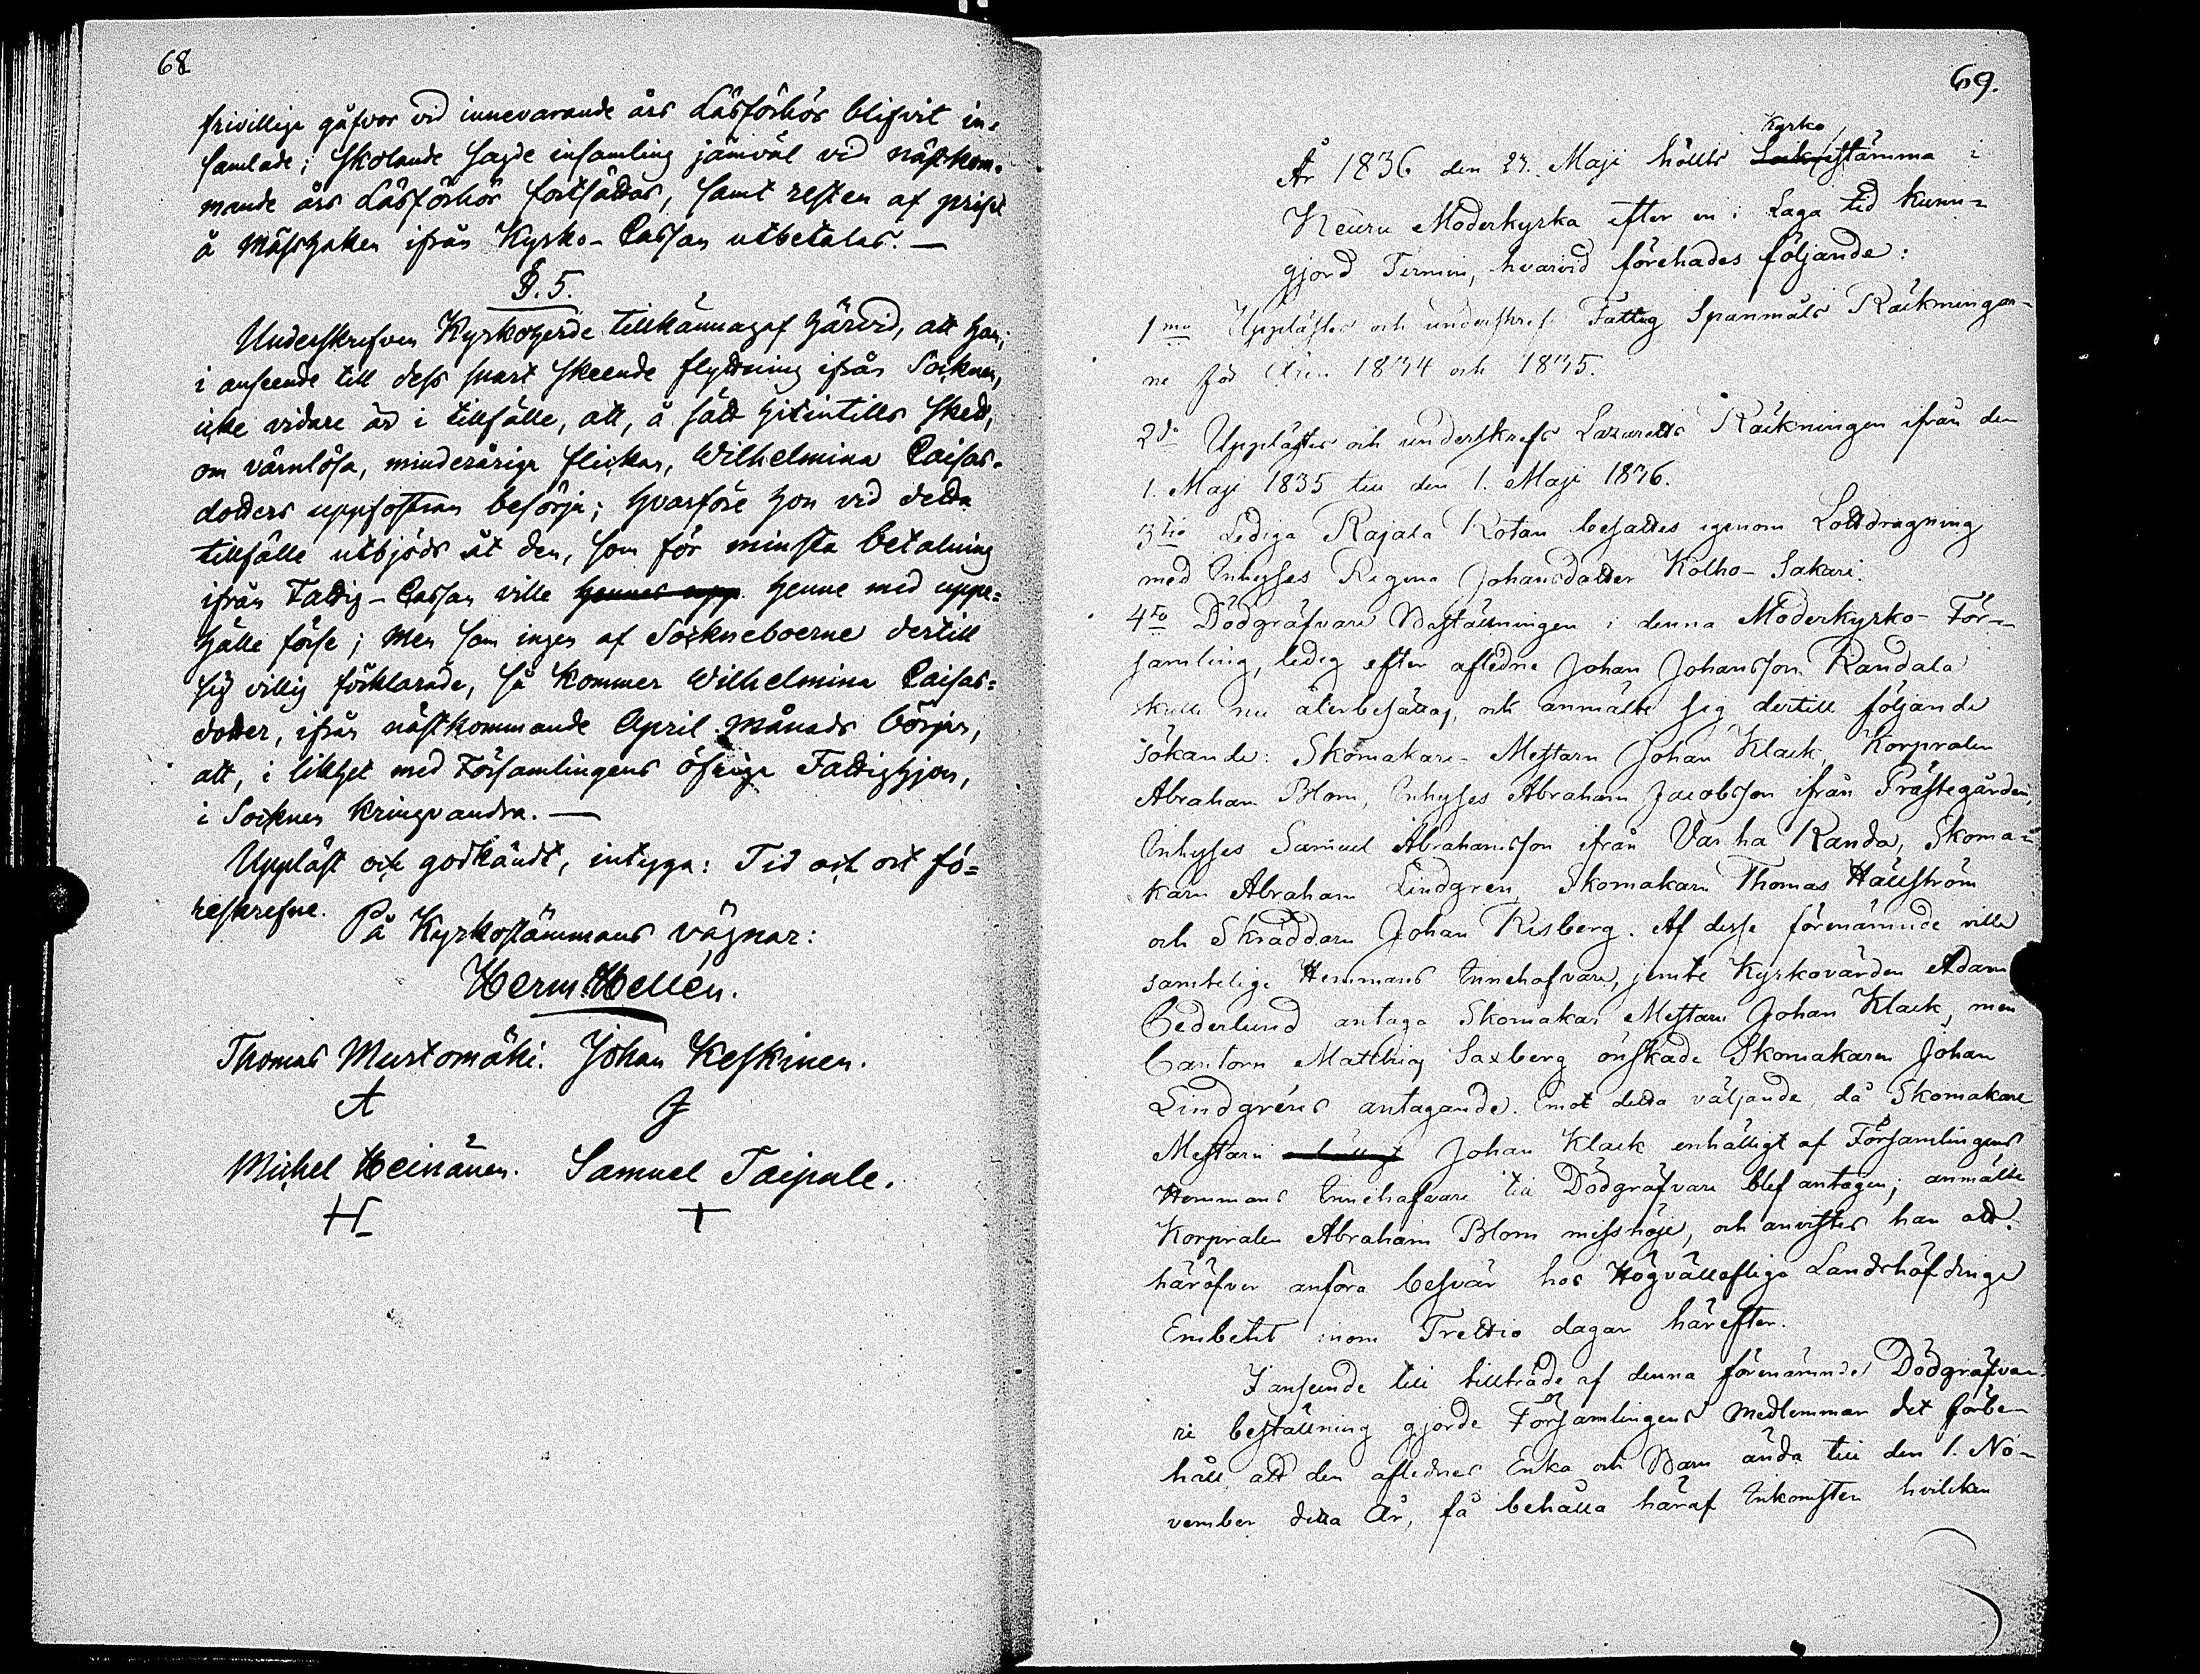 68
frivillige gåfvor vid innevarande års Läsförhör blifvit in-
samlade; skolande sagde insamling jämväl vid nästkom-
mande års Läsförhör fortsättas, samt resten af priset
å Mässhaken ifrån Kyrko-Cassan utbetalas. —
§. 5.
Underskrefven Kyrkoherde tillkännagaf härvid, att han,
i anseende till dess snart skeende flyttning ifrån Socknen,
icke vidare är i tillfälle, att, å sätt hitintills skett,
om värnlösa, minderåriga flickan, Wilhelmina Caisas-
dotters uppfostran besörja; hvarföre hon vid detta
tillfälle utbjöds åt den, som för minsta betalning
ifrån Fattig-Cassan ville hennes upp henne med uppe-
hälle förse; men som ingen af Sockneboerne dertill
sig villig förklarade, så kommer Wilhelmina Caisas-
dotter, ifrån nästkommande April Månads början,
att, i likhet med Församlingens öfrige Fattighjon,
i Socknen kringvandra. —
Uppläst och godkändt, intyga: Tid och ort fö-
reskrefne. På Kyrkostämmans vägnar:
Herm. Hellén.
Thomas Mustomäki. Johan Keskinen.
A J
Michel Heinänen. Samuel Taipale.
H +
69.
Kyrko
År 1836 den 27. Maji hölls Sockenstämma i
Keuru Moderkyrka efter en i Laga tid kunn-
gjord Termin, hvarvid förehades följande:
1mo Upplästes och underskref Fattig Spanmåls Räkningar-
ne för Åren 1834 och 1835.
2do Upplästes och underskrefs Lazaretts Räkningen ifrån den
1. Maji 1835 till den 1. Maji 1836.
3tio Lediga Rajala Rotan besattes igenom Lottdragning
med Inhyses Regina Johansdotter Kolho-Sakari.
4to Dödgräfvare Beställningen i denna Moderkyrko-För-
samling, ledig efter aflidne Johan Johansson Randala
skulle nu återbesättas, och anmälte sig dertill följande
sökande: Skomakare-Mestarn Johan Klack, Korpralen
Abraham Blom, Inhyses Abraham Jacobsson ifrån Prästegården,
Inhyses Samuel Abrahamsson ifrån Vanha Randa, Skoma-
karn Abraham Lindgren, Skomakarn Thomas Hällström
och Skräddarn Johan Risberg. Af desse förenämnde ville
samtelige Hemmans Innehafvare, jemte Kyrkovärden Adam
Cederlund antaga Skomakar Mestarn Johan Klack, men
Cantorn Matthias Saxberg önskade Skomakaren Johan
Lindgréns antagande. Emot detta väljande, då Skomakare
Mestarn Johan Klack enhälligt af Församlingens
Hemmans Innehafvare till Dödgräfvare blef antagen; anmälte
Korpralen Abraham Blom missnöje, och anvistes han att
häröfver anföra besvär hos Högvällofliga Landshöfdinge
Embetet inom Trettio dagar härefter.
I anseende till tillträde af denna förenämnde Dödgräfva-
re beställning gjorde Församlingens Medlemmar det förbe-
håll att den aflidnes Enka och Barn ända till den 1. No-
vember detta År, få behålla häraf Inkomsten hvilken